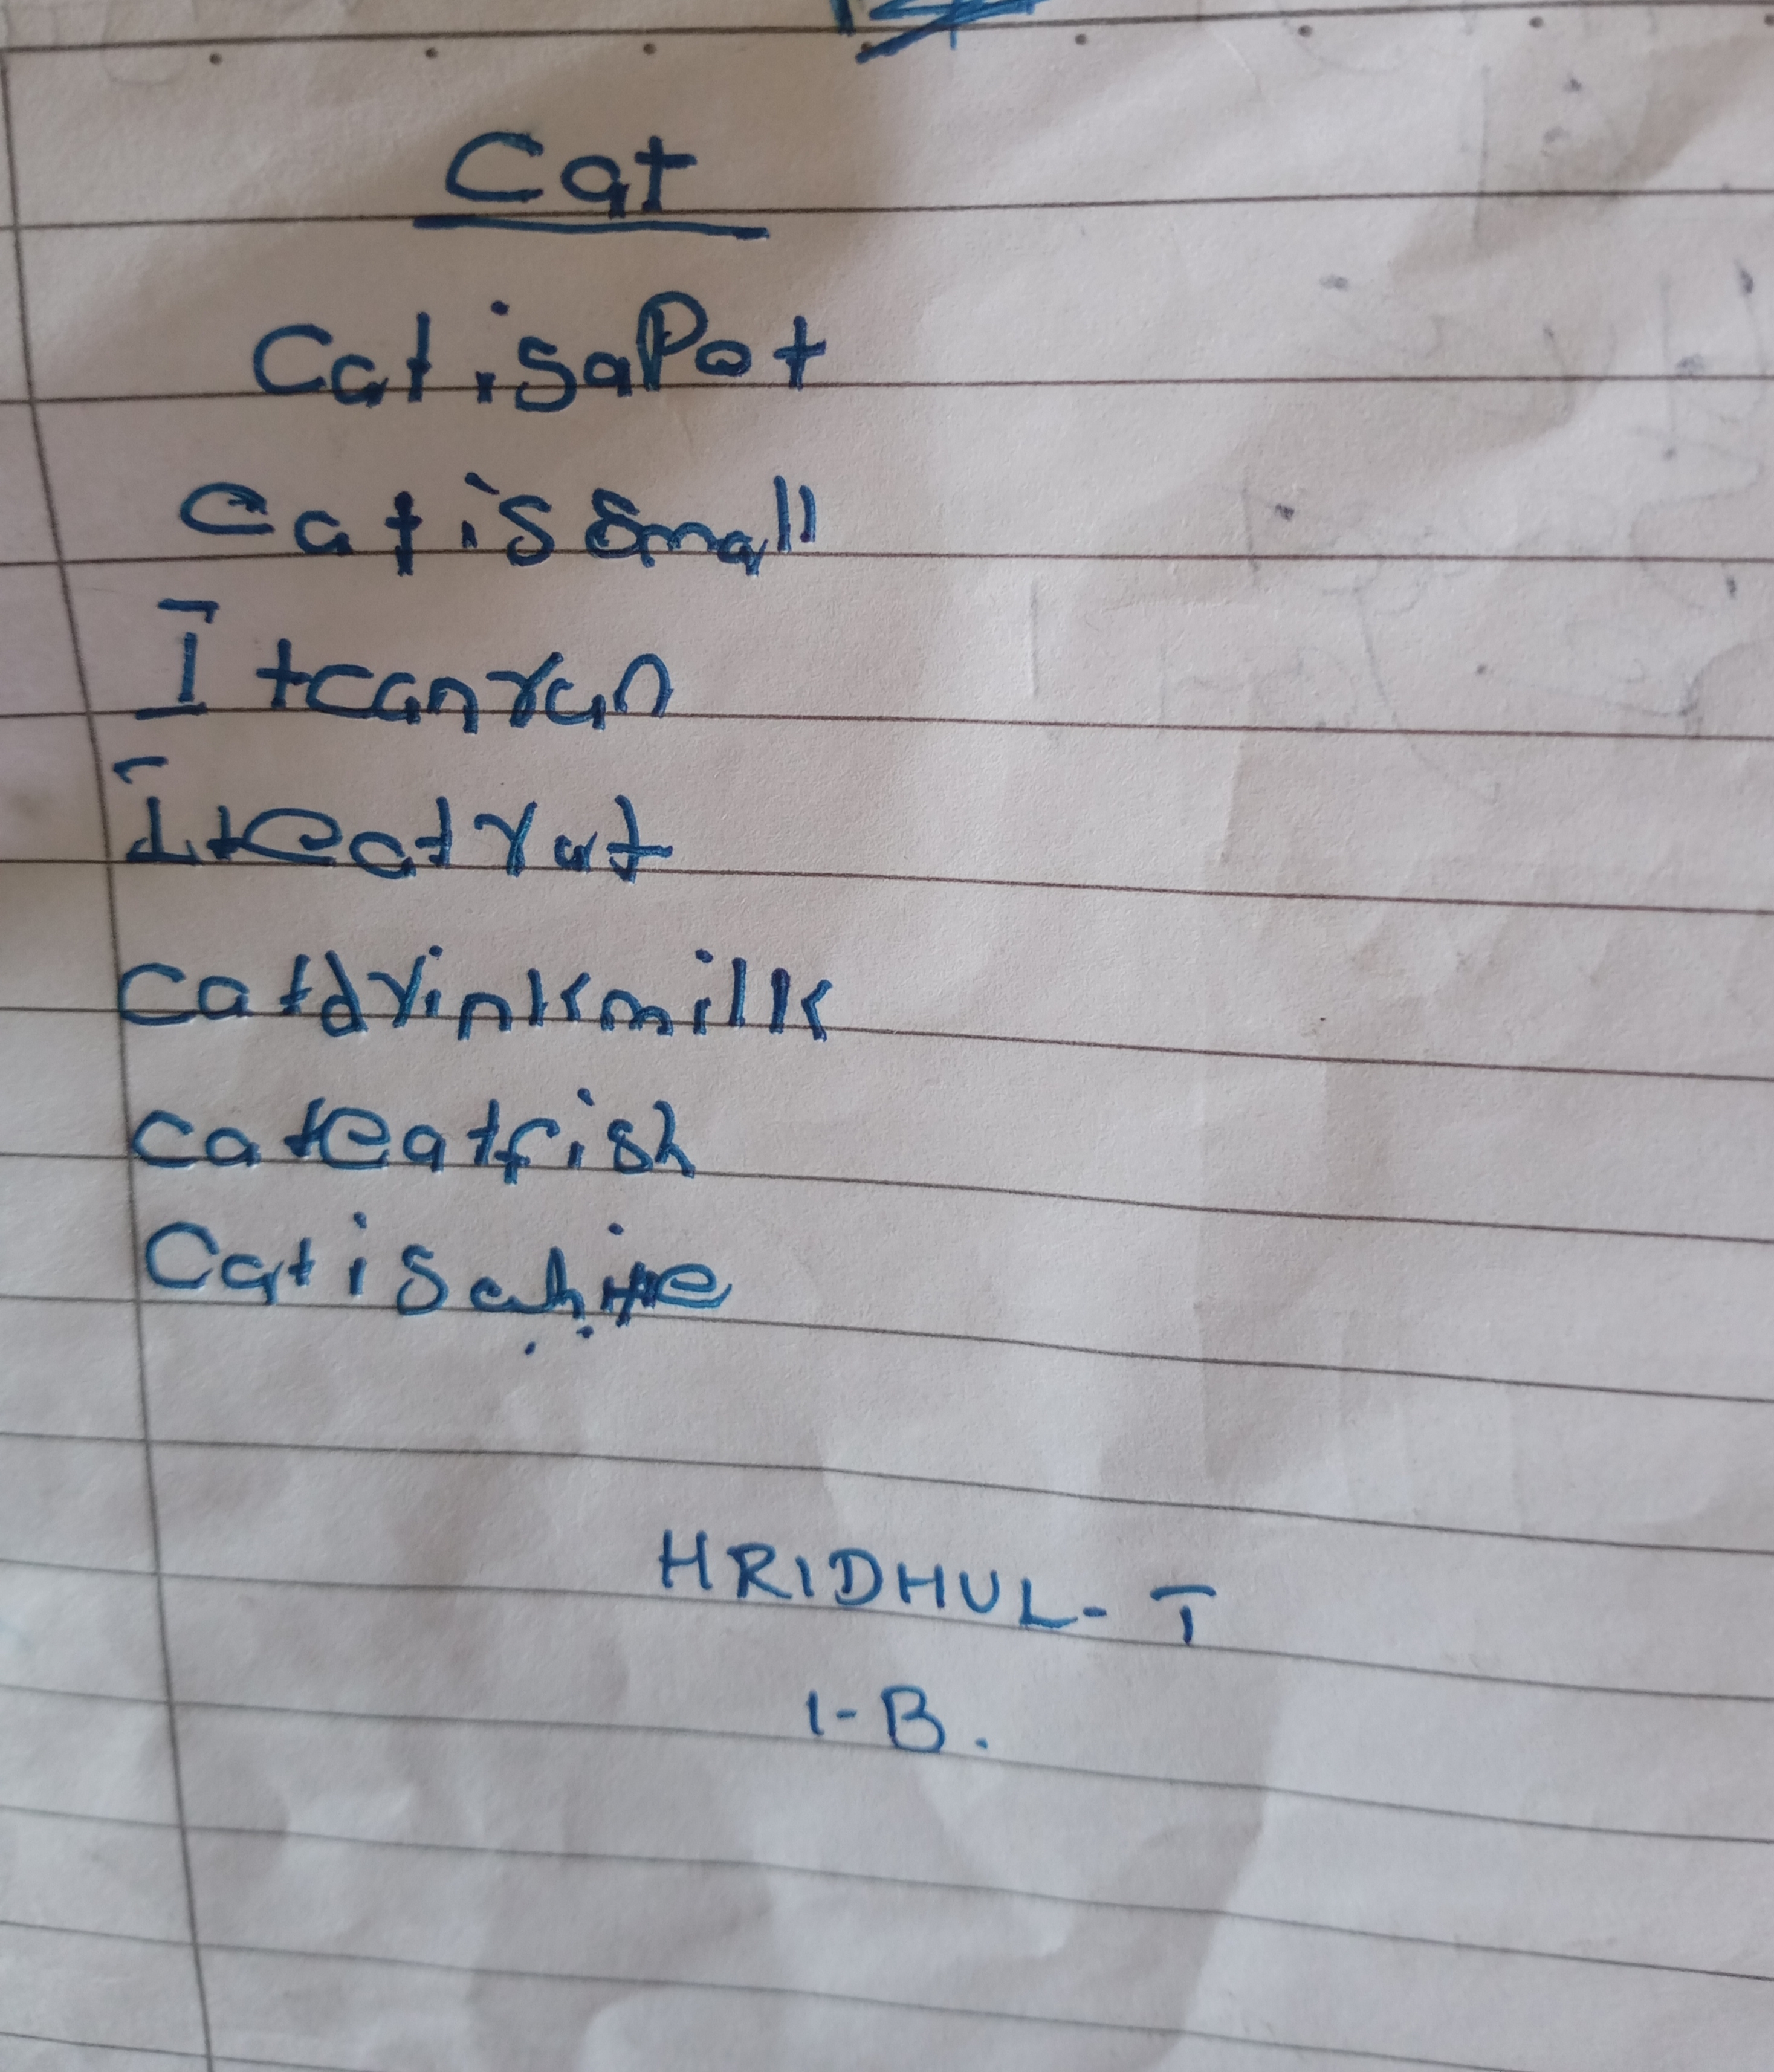 Cat
Cat isaPot
Cat is small
It can run
It eat rat
cat drink milk
cat eat fish
Cat is
HRIDHUL- T
1-B.